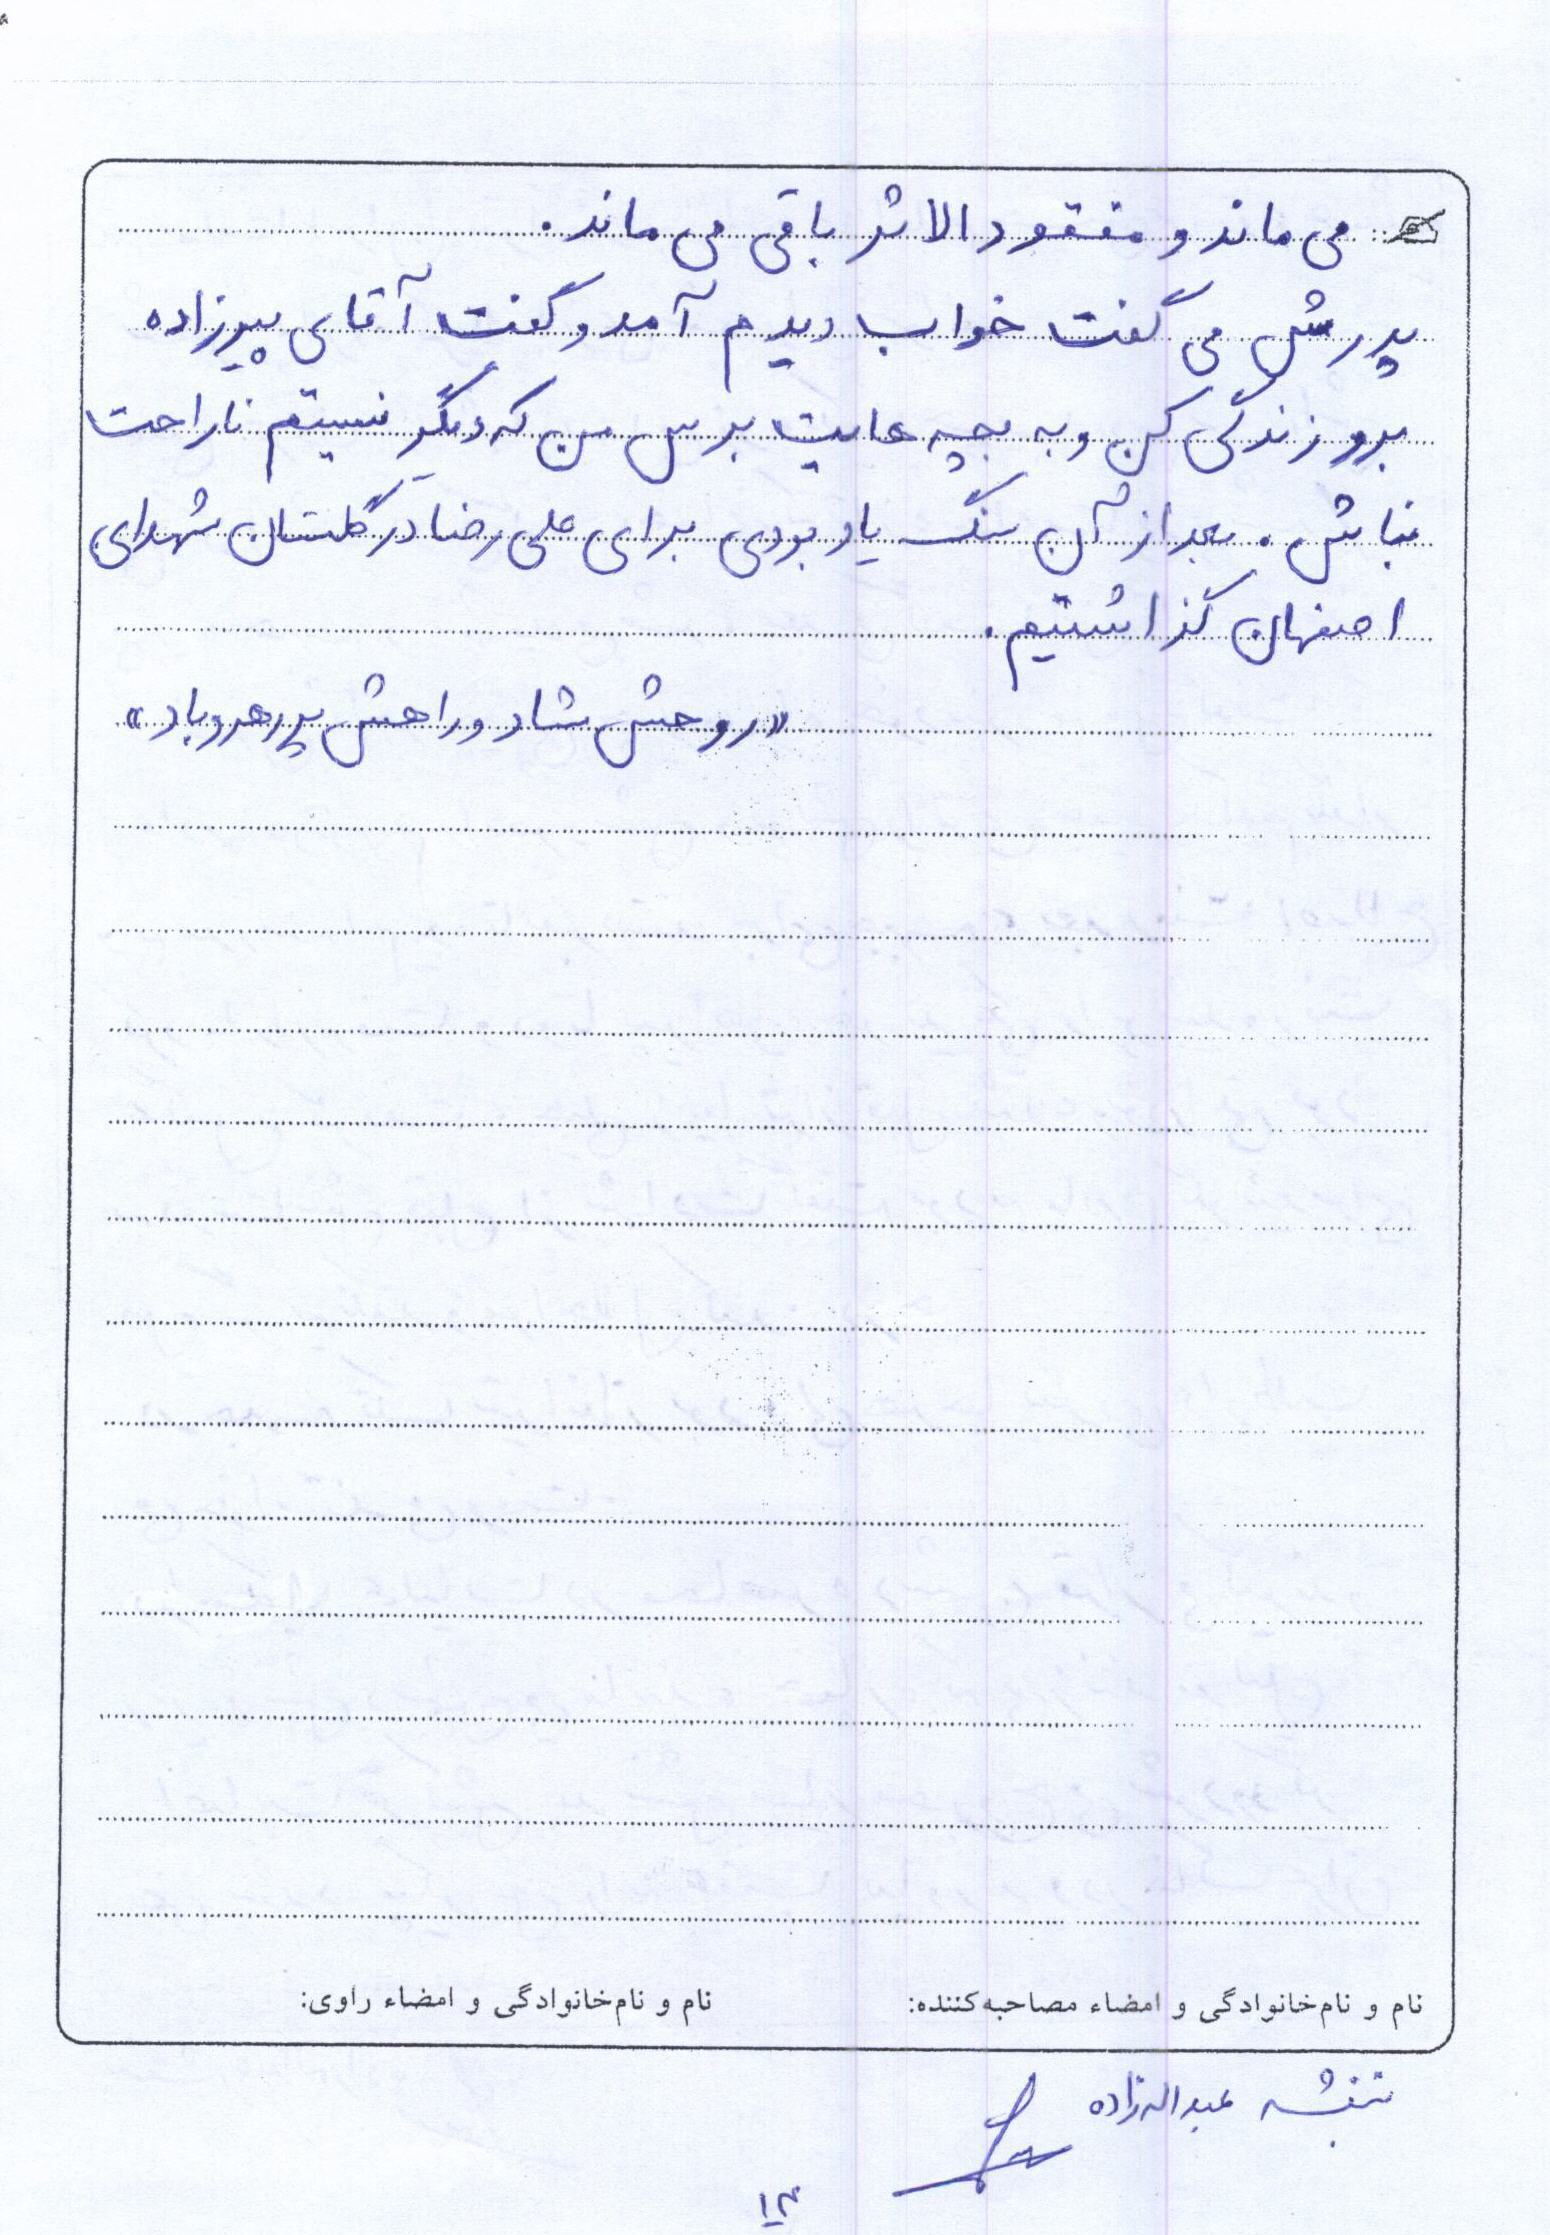 می ماند و مفقود الاثر باقی می ماند.
پدرش می گفت خواب دیدم آمد و گفت آقای پیرزاده
برو زندگی کن و به بچه هایت برس من که دیگر نیستم ناراحت
نباش. بعد از آن سنگ یادبودی برای علی رضا در گلستان شهدای
اصفهان گذاشتیم.
«روحش شاد و راهش پر رهرو باد»
نام و نام‌خانوادگی و امضاء مصاحبه‌کننده:
نام و نام‌خانوادگی و امضاء راوی:
بنفشه عبداله زاده
۱۳